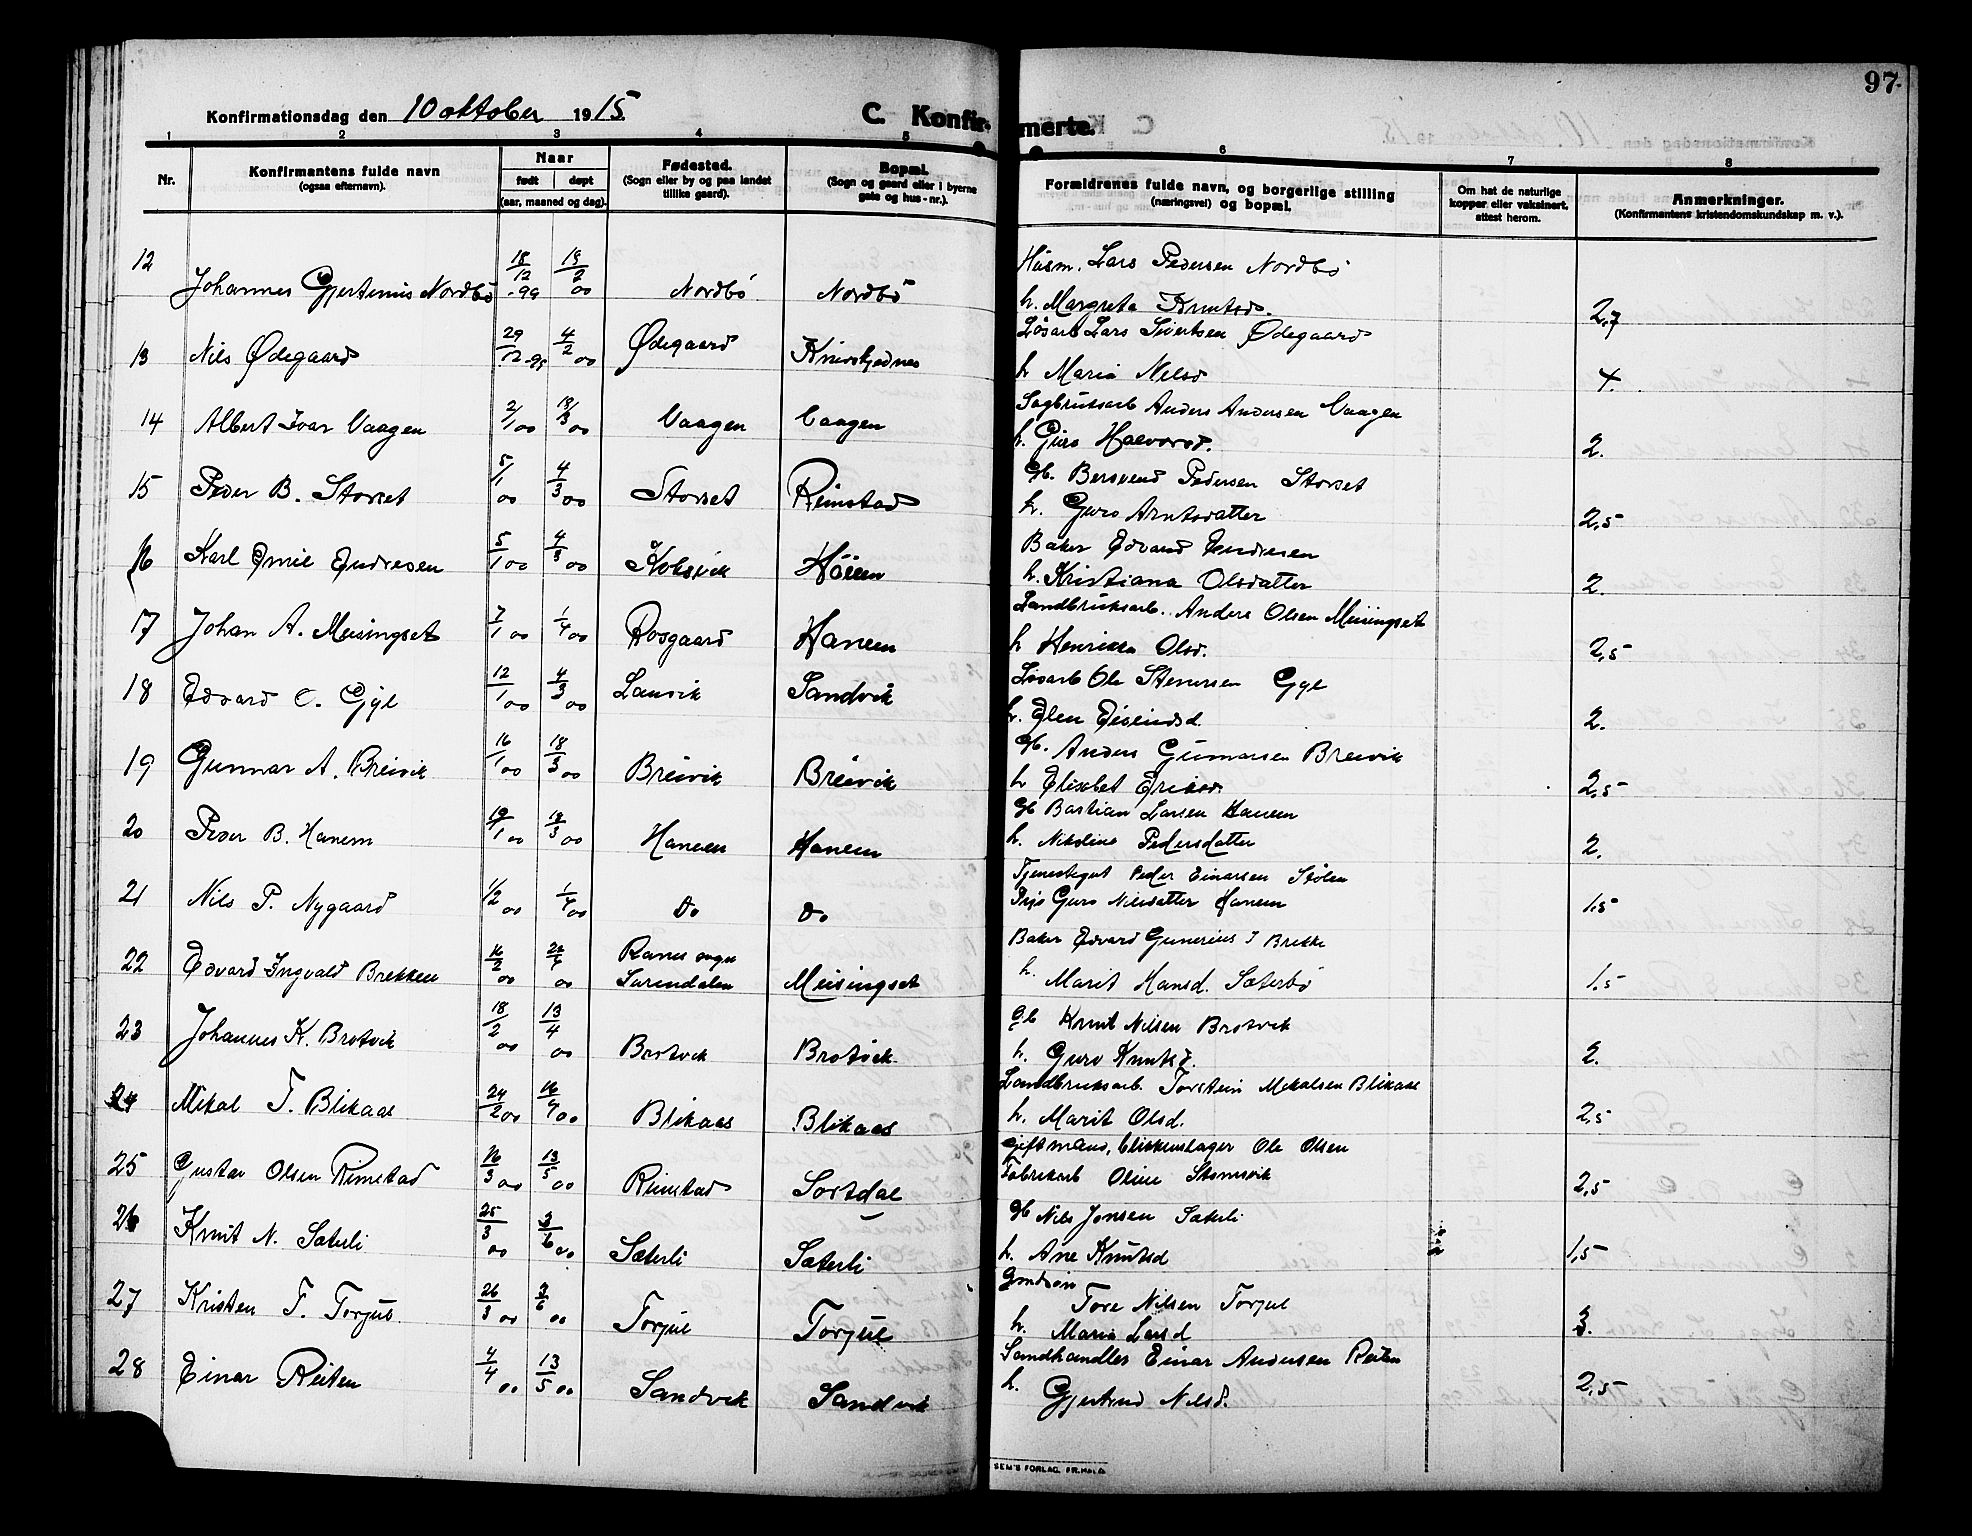 97.
Konfirmationsdag den 10 oktober 1915.
C. Konfirmerte.
1 2 3 4 5 6 7 8
Nr.
Konfirmantens fulde navn
(ogsaa efternavn).
Naar
født døpt
(aar, maaned og dag).
Fødested.
(Sogn eller by og paa landet
tillike gaard).
Bopæl.
(Sogn og gaard eller i byerne
gate og hus-nr.).
Forældrenes fulde navn, og borgerlige stilling
(næringsvei) og bopæl.
Om hat de naturlige
kopper eller vaksinert,
attest herom.
Anmerkninger.
(Konfirmantens kristendomskundskap m. v.).
12 Johannes Gjertinius Nordbö 18/12 -99 18/2 00 Nordbö Nordbö Husm. Lars Pedersen Nordbö
h. Margreta Knutsd. 2,7
13 Nils Ødegaard 29/12 -99 4/2 00 Ødegaard Løsarb Lars Sivertsen Ødegaard
h Maria Nilsd 4.
14 Albert Ivar Vaagen 2/1 00 18/3 00 Vaagen Vaagen Sagbruksarb Anders Andersen Vaagen
h. Guro Halvorsd. 2.
15 Peder B. Storset 5/1 00 4/3 00 Storset Rimstad Gb. Bersvend Pedersen Storset
h. Guro Arntsdatter 2,5
16 Karl Emil Endresen 5/1 00 4/3 00 Höiem Baker Edvard Endresen
h. Kristiana Olsdatter 2.
17 Johan A. Meisingset 7/1 00 1/4 00 Rosgaard Hanem Landbruksarb. Anders Olsen Meisingset
h Henrikka Olsd. 2,5
18 Edvard O. Gyl 12/1 00 4/3 00 Sandvik Løsarb Ole Stenersen Gyl
h. Elen Eisendsd. 2.
19 Gunnar A. Breivik 16/1 00 18/3 00 Breivik Breivik Gb. Anders Gunnarsen Breivik
h Elisabet Eriksd. 2,5
20 Peder B. Hanem 19/1 00 18/3 00 Hanem Hanem Gb Bastian Larsen Hanem
h. Nikoline Pedersdatter 2.
21 Nils P. Nygaard 1/2 00 1/4 00 Do Do Tjenestegut Peder Einarsen Stölen
Pige Guro Nilsdatter Hanem 1,5
22 Edvard Ingvald Brekken 16/2 00 22/4 00 Ranes sogn
Surendalen Meisingset Baker Edvard Gunerius J Brekke
h. Marit Hansd. Sæterbö 1,5
23 Johannes K. Brotvik 18/2 00 13/4 00 Brotvik Brotvik Gb Knut Nilsen Brotvik
h. Guro Knutsd. 2.
24 Mikal T. Blikaas 24/2 00 16/4 00 Blikaas Blikaas Landbruksarb Torstein Mikalsen Blikaas
h. Marit Olsd. 2,5
25 Gustav Olsen Rimstad 16/3 00 13/5 00 Rimstad Sortdal Gift mand, blikkenslager Ole Olsen
Fabrikarb Oline Stomsvik 2,5
26 Knut N. Sæterli 25/3 00 3/6 00 Sæterli Sæterli Gb Nils Jonsen Sæterli
h. Ane Knutsd 1,5
27 Kristen T. Torjul 26/3 00 3/6 00 Torjul Torjul Grndsøn
Tore Nilsen Torjul
h. Maria Larsd 3.
28 Einar Reiten 4/4 00 13/5 00 Sandvik Sandvik Landhandler Einar Andersen Reiten
h. Gjertrud Nilsd. 2,5
SEM'S FORLAG, FR.HALD